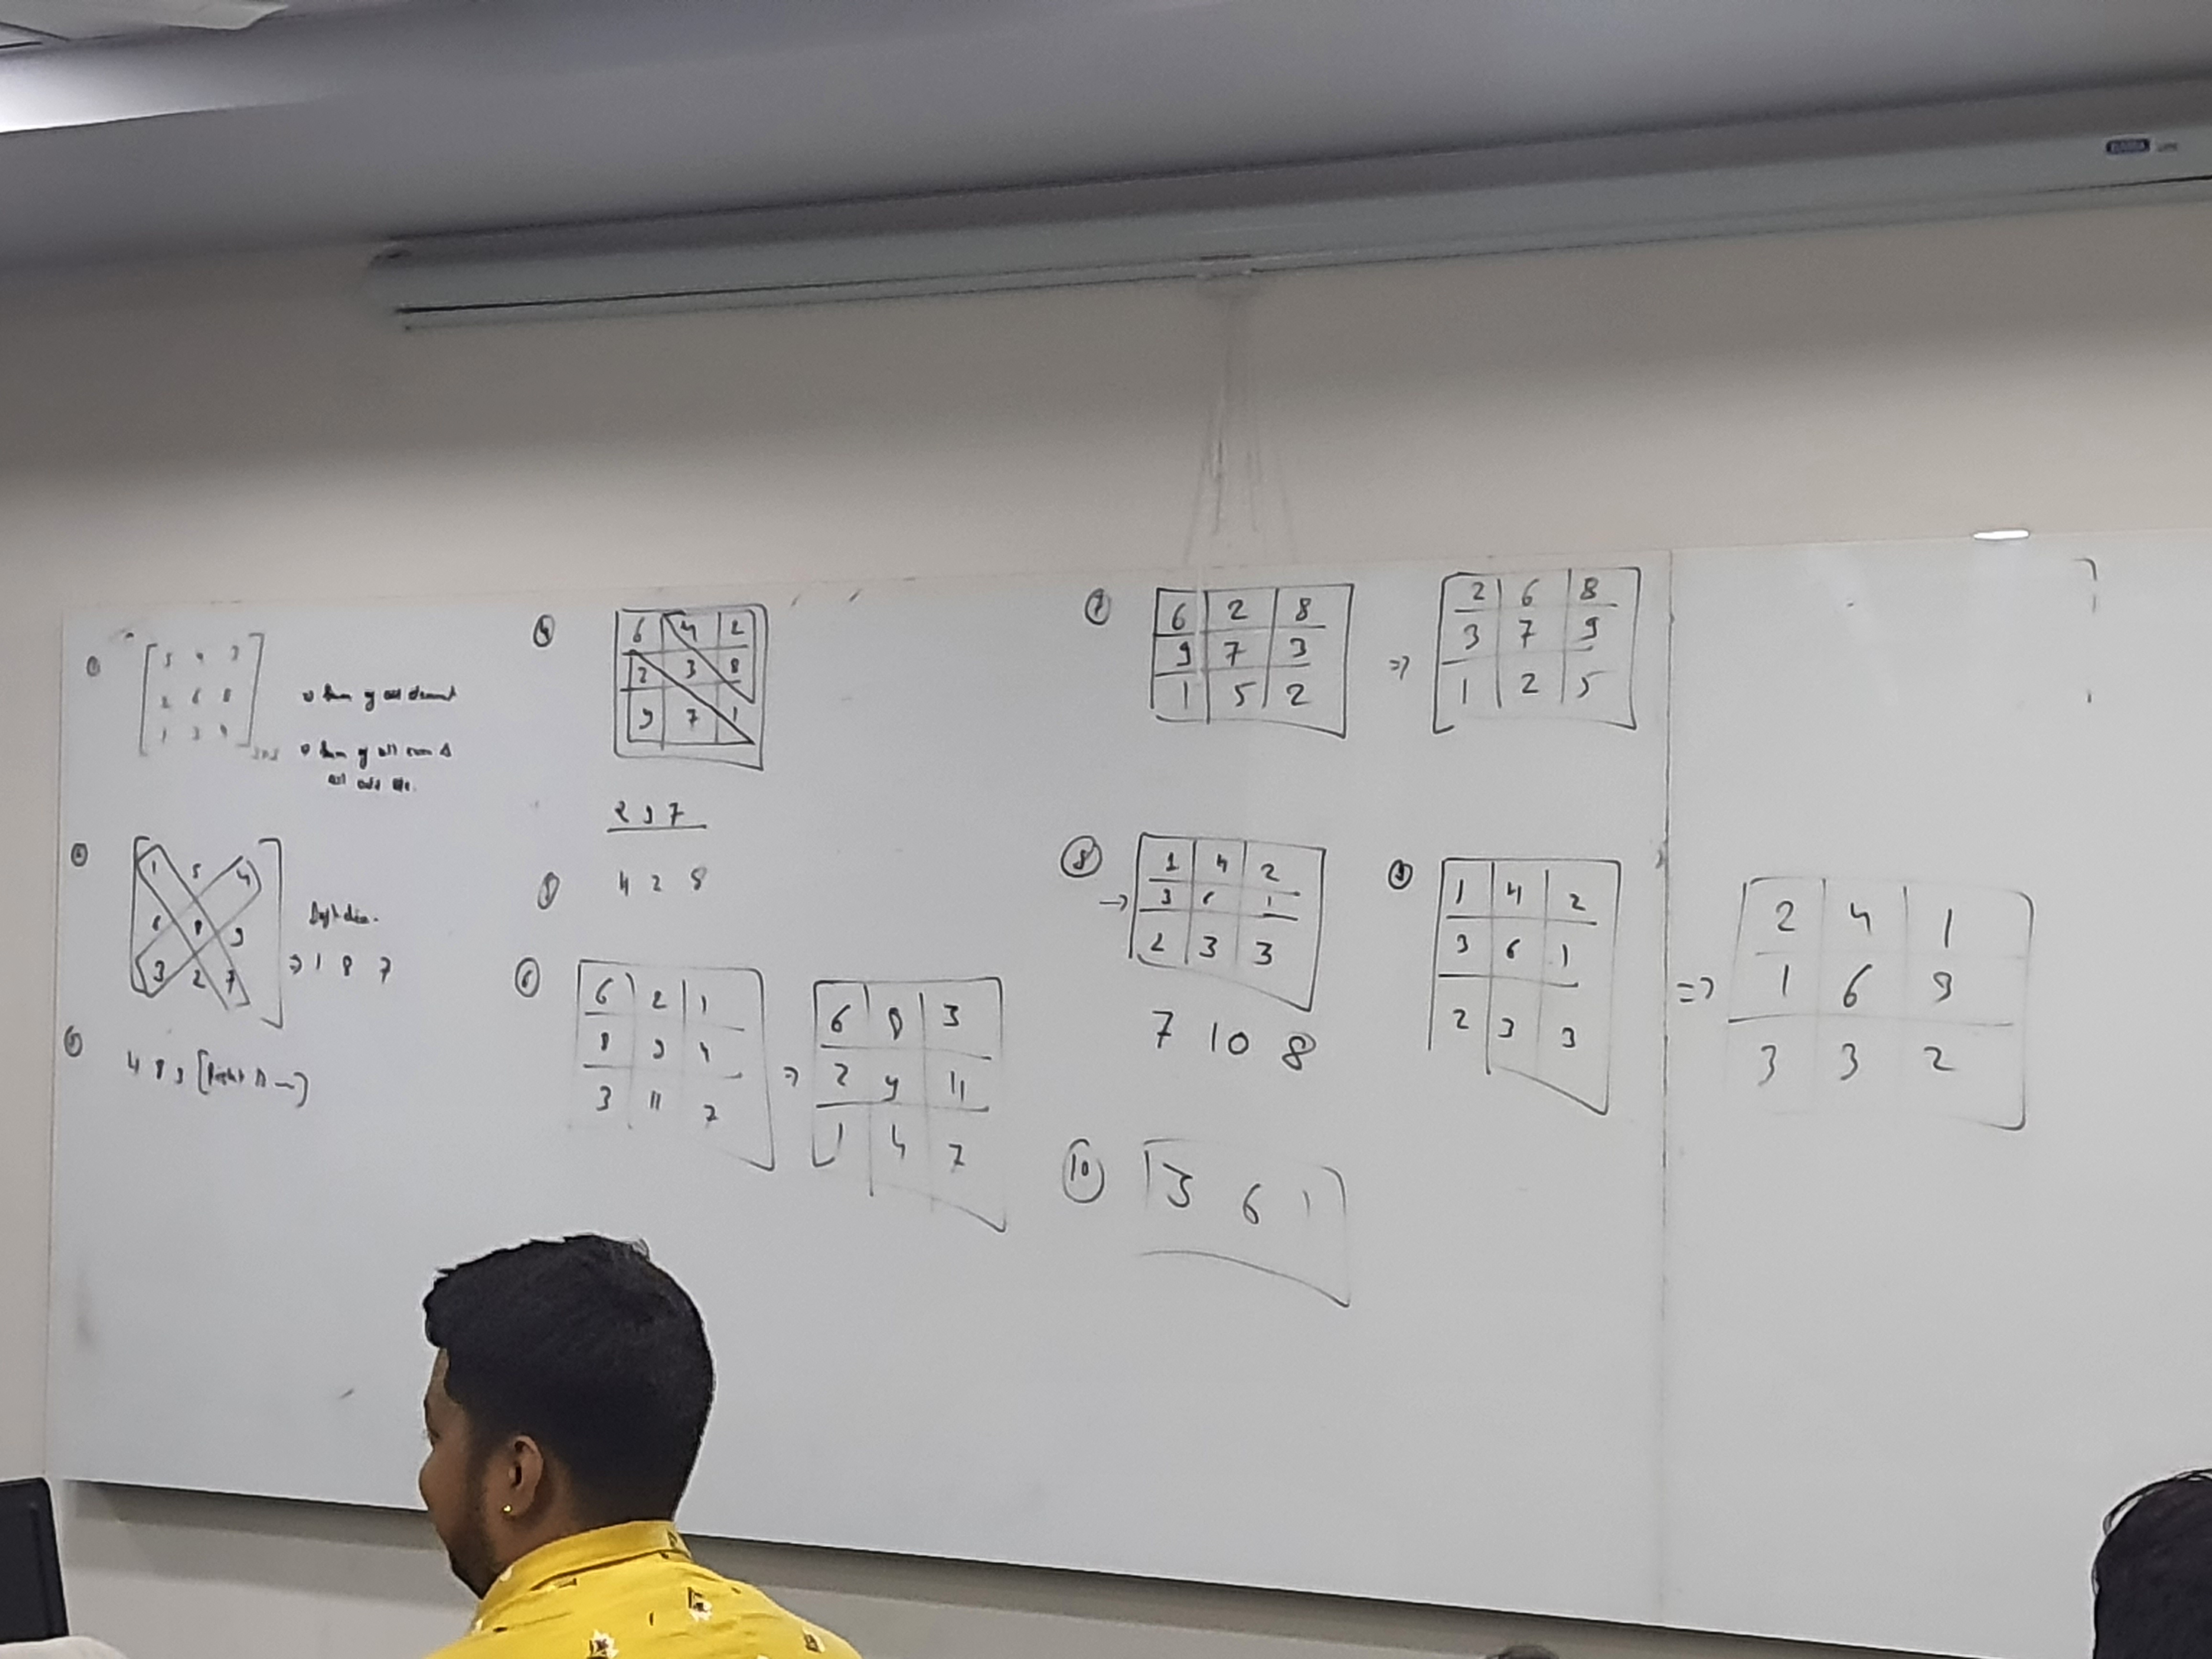 5 4 3
2 6 8
1 3 4
sum of all element
sum of all even &
all odd ele.
1 5 4
6 8 9
3 2 7
⇒ 1 8 7
4 8 3
④
6 4 2
2 3 8
9 7 1
2 9 7
4 2 8
⑥
6 2 1
8 9 4
3 11 7
⇒
6 8 3
2 9 11
1 4 7
⑦
6 2 8
9 7 3
1 5 2
⇒
2 6 8
3 7 9
1 2 5
⑧
1 4 2
→ 3 6 1
2 3 3
7 10 8
⑨
1 4 2
3 6 1
2 3 3
⇒
2 4 1
1 6 3
3 3 2
⑩
3 6 1